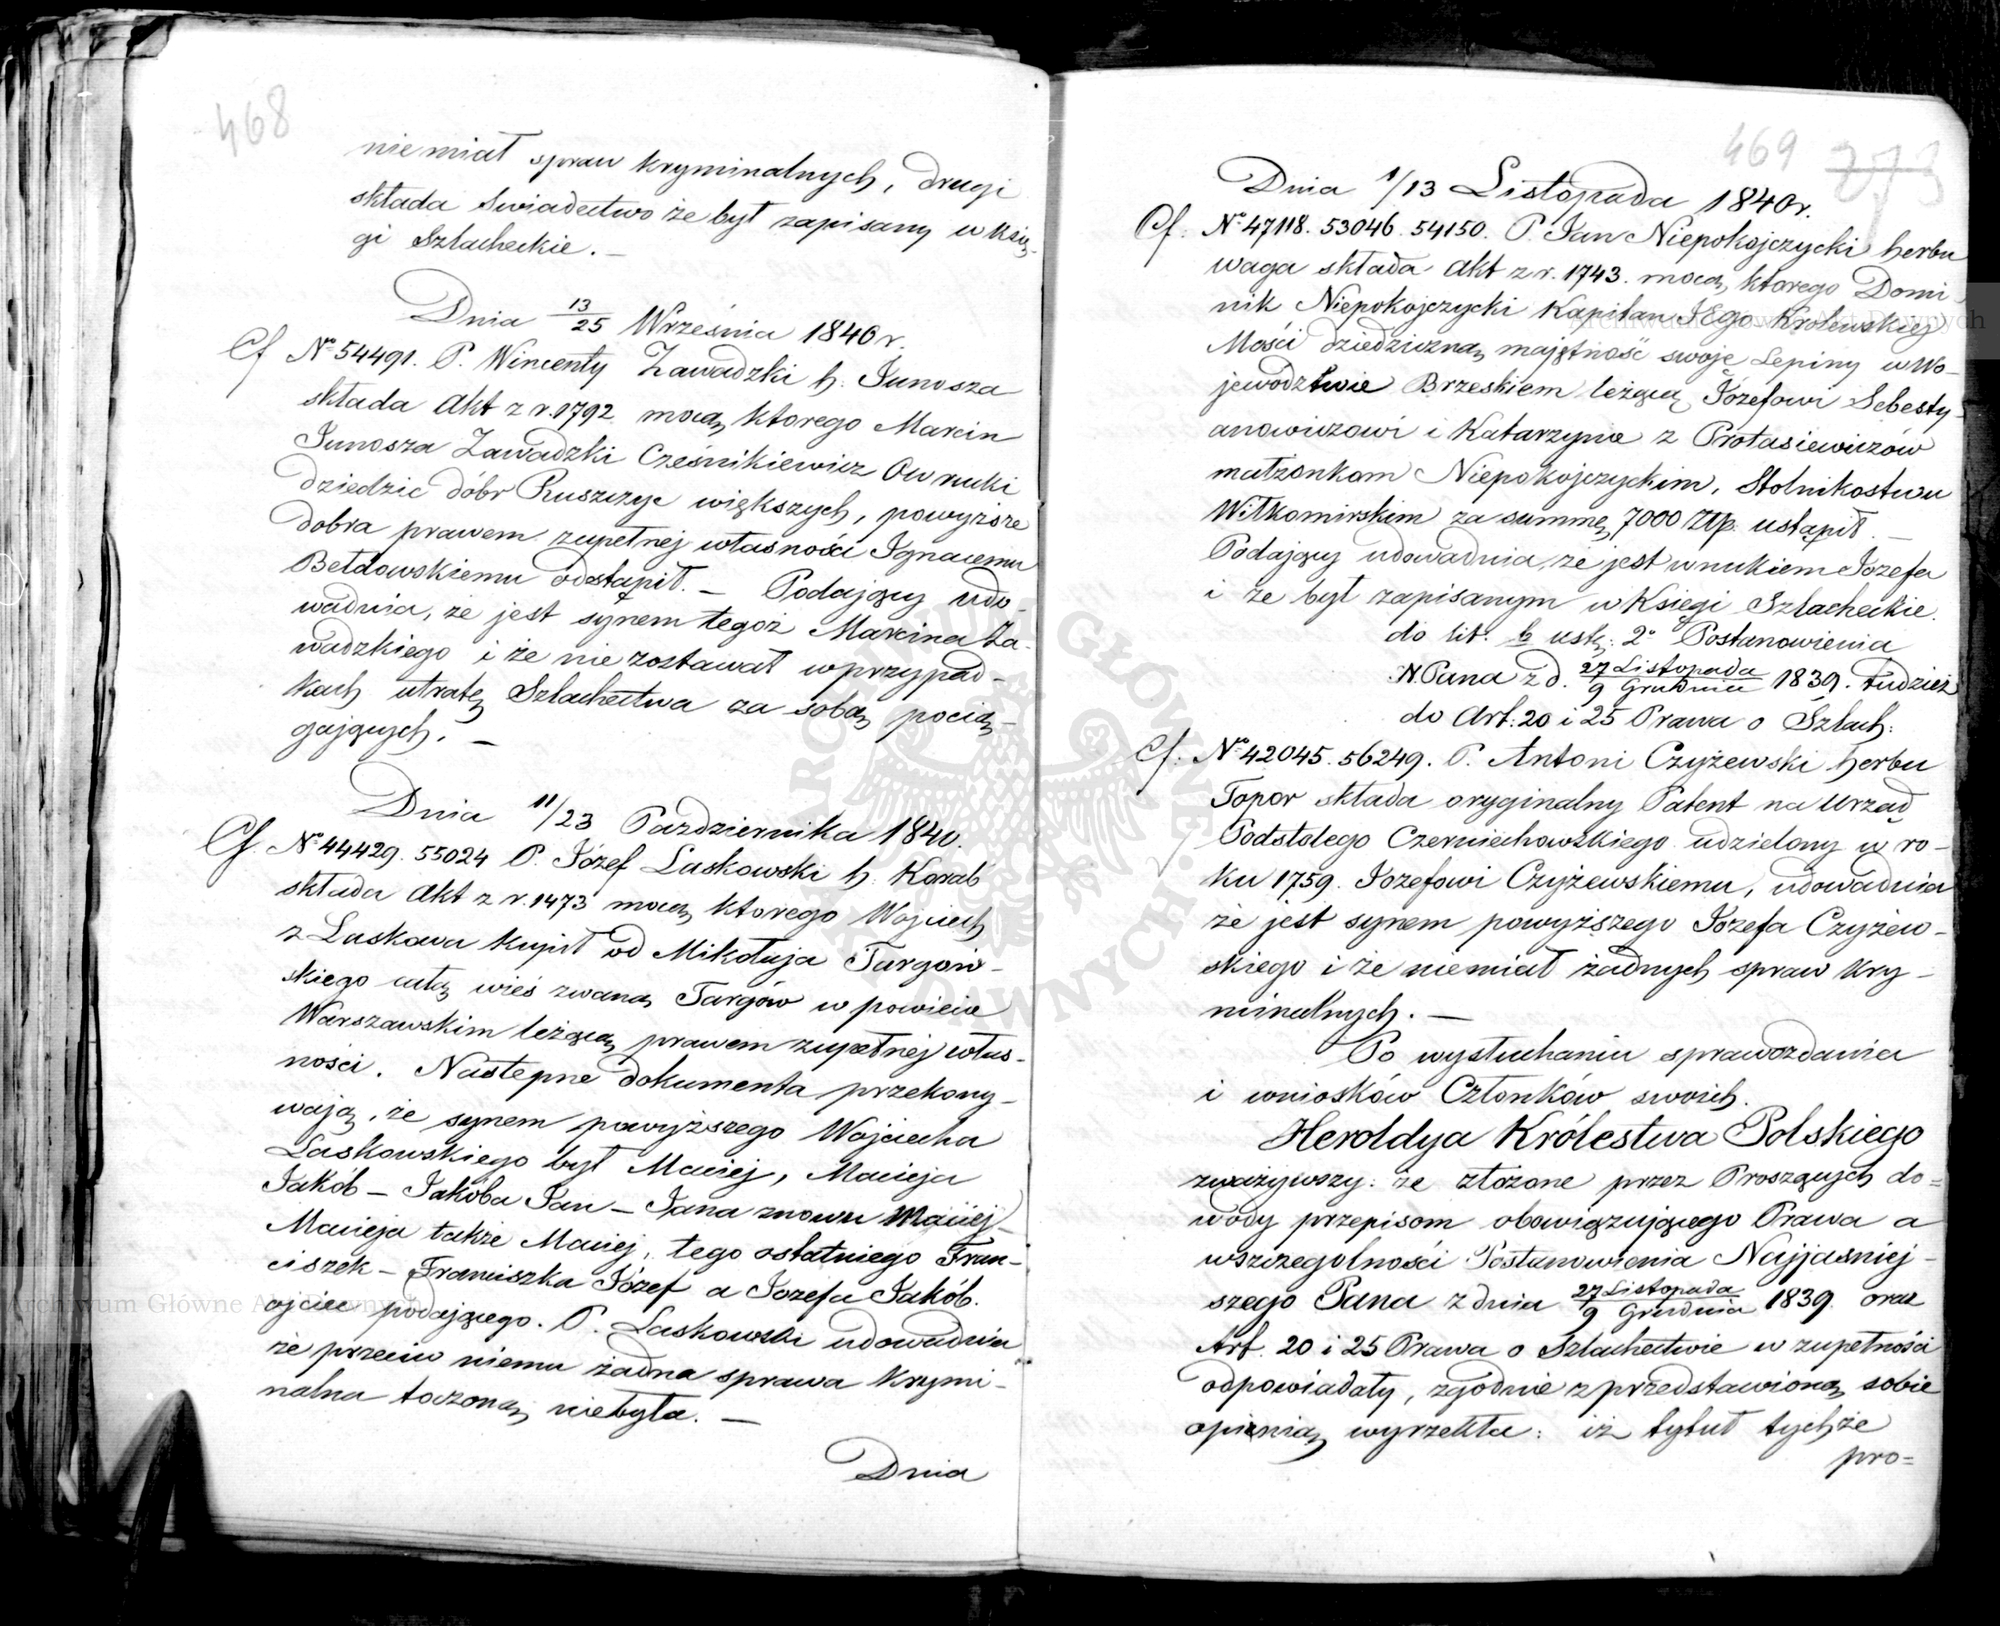 468
nie miał spraw kryminalnych, drugi
składa Swiadectwo że był zapisany w Księ-
gi Szlacheckie. —
Dnia 13/25 Września 1840 r.
Cf. N° 54491. P. Wincenty Zawadzki h. Junosza
składa Akt z r. 1792 mocą ktorego Marcin
Junosza Zawadzki Cześnikiewicz Owrucki
dziedzic dóbr Ruszczyc większych, powyższe
dobra prawem zupełnej własności Ignacemu
Bełdowskiemu odstąpił. — Podający udo-
wadnia, że jest synem tegoż Marcina Za-
wadzkiego i że nie zostawał w przypad-
kach utratę Szlachectwa za sobą pocią-
gających. —
Dnia 11/23 Pazdziernika 1840.
Cf. N° 44429. 55024 P. Józef Laskowski h. Korab
składa Akt z r. 1473 mocą ktorego Wojciech
z Laskowa kupił od Mikołaja Targow-
skiego całą wieś zwaną Targów w powiecie
Warszawskim leżącą prawem zupełnej włas-
ności. Nastepne dokumenta przekony-
wają, że synem powyższego Wojciecha
Laskowskiego był Maciej, Macieja
Jakób — Jakóba Jan — Jana znowu Maciej
Macieja także Maciej, tego ostatniego Fran-
ciszek — Franciszka Józef a Jozefa Jakób.
ojciec podającego. P. Laskowski udowadnia
że przeciw niemu żadna sprawa krymi-
nalna toczoną niebyła. —
Dnia
469 273
Dnia 1/13 Listopada 1840 r.
Cf. N° 47118. 53046. 54150. P. Jan Niepokojczycki herbu
waga składa Akt z r. 1743. mocą ktorego Domi-
nik Niepokojczycki Kapitan JEgo Krolewskiej
Mości dziedziczną majętność swoję Lepiny w Wo-
jewództwie Brzeskiem leżącą Józefowi Sebesty-
anowiczowi i Katarzynie z Protasiewiczów
małżonkom Niepokojczyckim, Stolnikostwu
Wiłkomirskim za summę 7000 Złp. ustąpił. —
Podający udowadnia, że jest wnukiem Jozefa
i że był zapisanym w Księgi Szlacheckie.
do lit. b ustę: 2° Postanowienia
N. Pana z d. 27 Listopada/9 Grudnia 1839. tudzież
do Art: 20 i 25 Prawa o Szlach:
Cf. N° 42045. 56249. P. Antoni Czyżewski herbu
Topor składa oryginalny Patent na Urząd
Podstolego Czerniechowskiego udzielony w ro-
ku 1759. Jozefowi Czyżewskiemu, udowadnia
że jest synem powyższego Józefa Czyżew-
skiego i że niemiał żadnych spraw kry-
minalnych. —
Po wysłuchaniu sprawozdania
i wniosków Członków swoich.
Heroldya Królestwa Polskiego
zważywszy: że złożone przez Proszących do=
wody przepisom obowiązującego Prawa a
wszczegolności Postanowienia Najjaśniej-
szego Pana z dnia 27 Listopada/9 Grudnia 1839. oraz
Art. 20 i 25 Prawa o Szlachectwie w zupełności
odpowiadały, zgodnie z przedstawioną sobie
opinią wyrzekła: iż tytuł tychże
pro=
Archiwum Główne Akt Dawnych
Archiwum Główne Akt Dawnych
ARCHIWUM GŁÓWNE AKT DAWNYCH